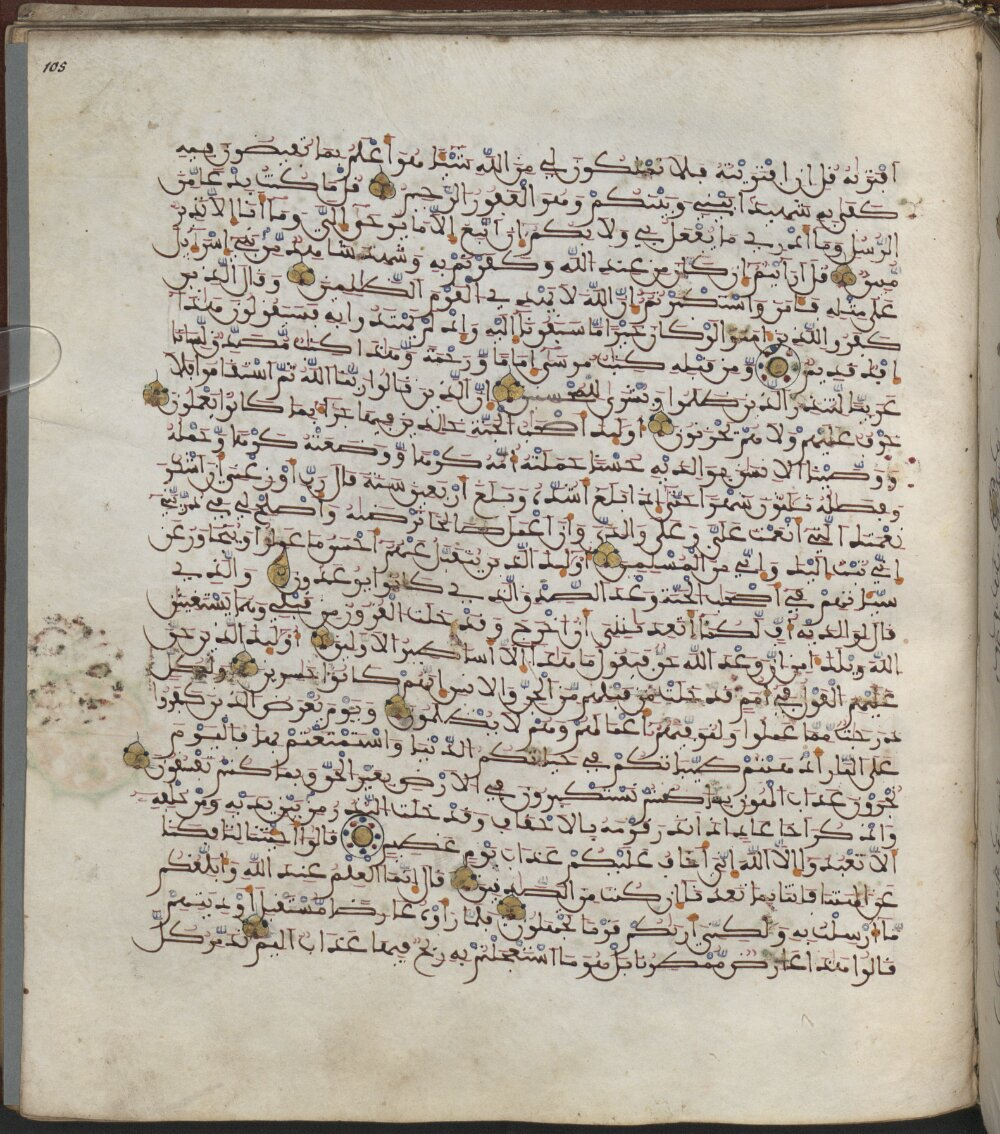 105
افتريه قل ان افتريته فلا تملكون لي من الله شيئا هو اعلم بما تفيضون فيه
كفى به شهيدا بيني وبينكم وهو الغفور الرحيم قل ما كنت بدعا من
الرسل وما ادري ما يفعل بي ولا بكم ان اتبع الا ما يوحى الي وما انا الا نذير
مبين قل ارايتم ان كان من عند الله وكفرتم به وشهد شاهد من بني اسرايل
على مثله فامن واستكبرتم ان الله لا يهدي القوم الظلمين وقال الذين
كفروا للذين امنوا لو كان خيرا ما سبقونا اليه واذ لم يهتدوا به فسيقولون هذا
افك قديم ومن قبله كتب موسى اماما ورحمة وهذا كتب مصدق لسانا
عربيا لتنذر الذين ظلموا وبشرى للمحسنين ان الذين قالوا ربنا الله ثم استقموا فلا
خوف عليهم ولا هم يحزنون اوليك اصحب الجنة خلدين فيها جزاء بما كانوا يعملون
ووصينا الانسن بوالديه حسنا حملته امه كرها ووضعته كرها وحمله
وفصله ثلثون شهرا حتى اذا بلغ اشده وبلغ اربعين سنة قال رب اوزعني ان اشكر
نعمتك التي انعمت علي وعلى والدي وان اعمل صالحا ترضيه واصلح لي في ذريتي
اني تبت اليك واني من المسلمين اوليك الذين يتقبل عنهم احسن ما عملوا ويتجاوز عن
سياتهم في اصحب الجنة وعد الصدق الذي كانوا يوعدون والذي
قال لوالديه اف لكما اتعدانني ان اخرج وقد خلت القرون من قبلي وهما يستغيثن
الله ويلك امن ان وعد الله حق فيقول ما هذا الا اسطير الاولين اوليك الذين حق
عليهم القول في امم قد خلت من قبلهم من الجن والانس انهم كانوا خسرين ولكل
درجت مما عملوا ولنوفيهم اعملهم وهم لا يظلمون ويوم يعرض الذين كفروا
على النار اذهبتم طيبتكم في حياتكم الدنيا واستمتعتم بها فاليوم
تجزون عذاب الهون بما كنتم تستكبرون في الارض بغير الحق وبما كنتم تفسقون
واذكر اخا عاد اذ انذر قومه بالاحقاف وقد خلت النذر من بين يديه ومن خلفه
الا تعبدوا الا الله اني اخاف عليكم عذاب يوم عظيم قالوا اجئتنا لتافكنا
عن الهتنا فاتنا بما تعدنا ان كنت من الصدقين قال انما العلم عند الله وابلغكم
ما ارسلت به ولكني اريكم قوما تجهلون فلما راوه عارضا مستقبل اوديتهم
قالوا هذا عارض ممطرنا بل هو ما استعجلتم به ريح فيها عذاب اليم تدمر كل